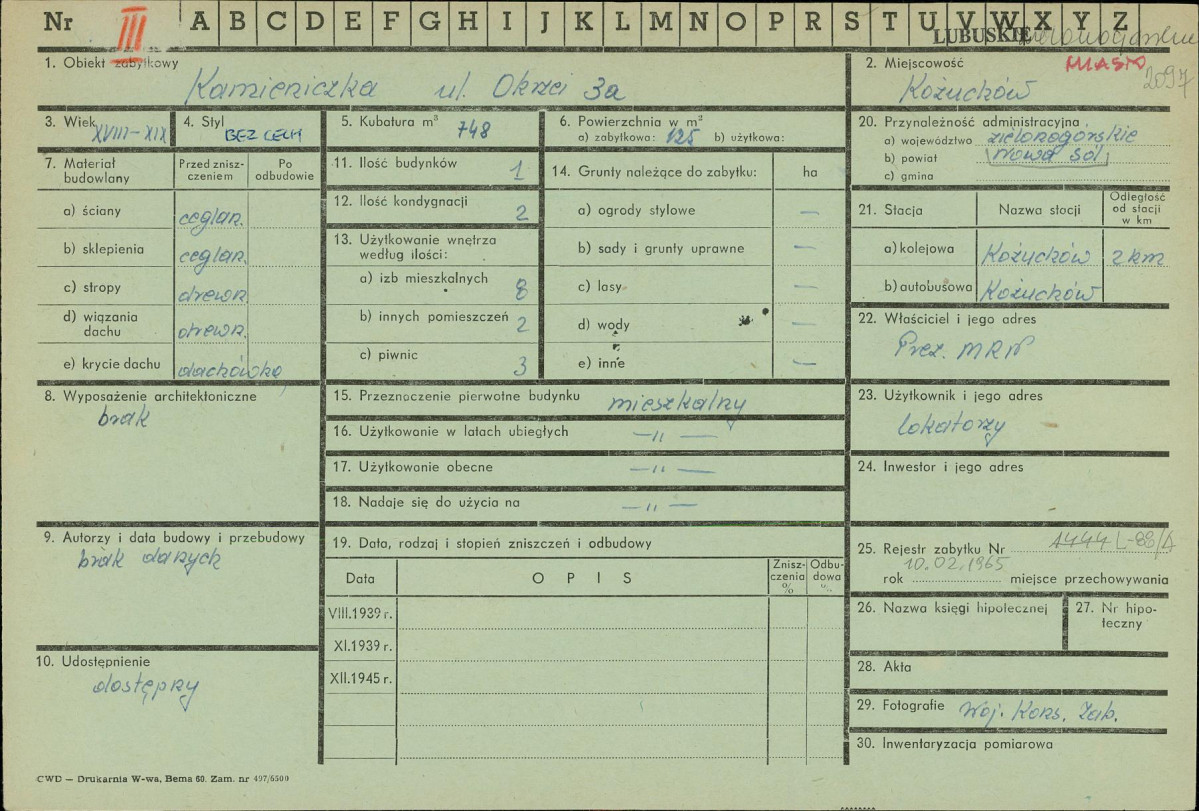 Nr III A B C D E F G H I J K L M N O P R S T U V W X Y Z
LUBUSKIE
MIASTO 2097
1. Obiekt zabytkowy
Kamieniczka ul. Okrzei 3a
2. Miejscowość
Kożuchów
3. Wiek
XVIII-XIX
4. Styl
BEZ CECH
5. Kubatura m³ 748
6. Powierzchnia w m²
a) zabytkowa: 125 b) użytkowa:
20. Przynależność administracyjna
a) województwo zielonogórskie
b) powiat Nowa Sól
c) gmina
7. Materiał budowlany
Przed zniszczeniem
Po odbudowie
a) ściany ceglan.
b) sklepienia ceglan.
c) stropy drewn.
d) wiązania dachu drewn.
e) krycie dachu dachówka
11. Ilość budynków 1
12. Ilość kondygnacji 2
13. Użytkowanie wnętrza według ilości:
a) izb mieszkalnych 8
b) innych pomieszczeń 2
c) piwnic 3
14. Grunty należące do zabytku: ha
a) ogrody stylowe —
b) sady i grunty uprawne —
c) lasy —
d) wody —
e) inne —
21. Stacja
Nazwa stocji
Odległość od stacji w km
a) kolejowa Kożuchów 2 km
b) autobusowa Kożuchów
22. Właściciel i jego adres
Prez. MRN
8. Wyposażenie architektoniczne
brak
15. Przeznoczenie pierwotne budynku mieszkalny
16. Użytkowanie w latach ubiegłych —"—
17. Użytkowanie obecne —"—
18. Nadaje się do użycia na —"—
23. Użytkownik i jego adres
lokatorzy
24. Inwestor i jego adres
9. Autorzy i data budowy i przebudowy
brak danych
19. Data, rodzaj i stopień zniszczeń i odbudowy
Data
OPIS
Zniszczenia %
Odbudowa %
VIII.1939 r.
XI.1939 r.
XII.1945 r.
25. Rejestr zabytku Nr 1444 L-88/A
10.02.1965
rok miejsce przechowywania
26. Nazwa księgi hipotecznej
27. Nr hipoteczny
10. Udostępnienie
dostępny
28. Akta
29. Fotografie Woj. Kons. Zab.
30. Inwentaryzacja pomiarowa
CWD — Drukarnia W-wa, Bema 60. Zam. nr 497/6500